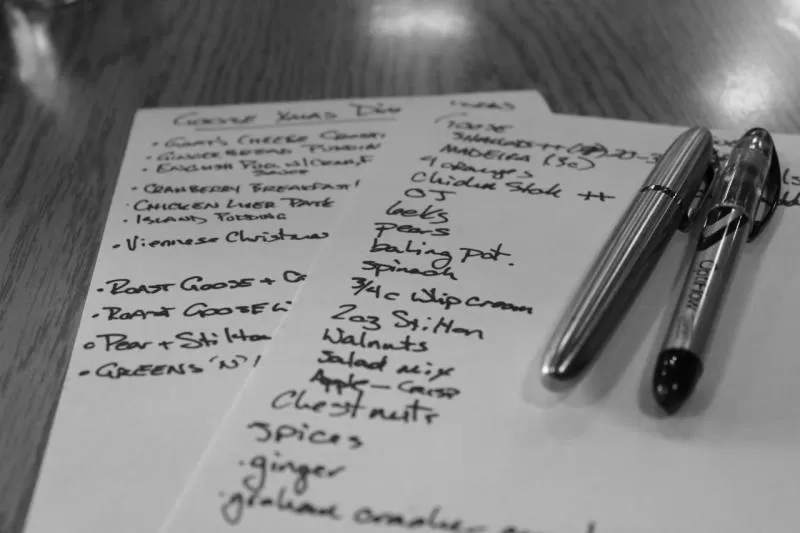 Goose Xmas Din
• Goat's Cheese
• Gingerbread
• English Pud w/
Sauce
• Cranberry Breakfast
• Chicken Liver Pate
• Island Pudding
• Viennese Christmas
• Roast Goose +
• Roast Goose
• Pear + Stilton
• Greens 'N'
Goose
Shallots ++
Madeira (3c)
4 oranges
Chicken Stok ++
OJ
leeks
pears
baking pot.
spinach
3/4 c whip cream
2oz Stilton
Walnuts
Salad mix
Apple - Crisp
Chestnuts
spices
• ginger
• graham cracker